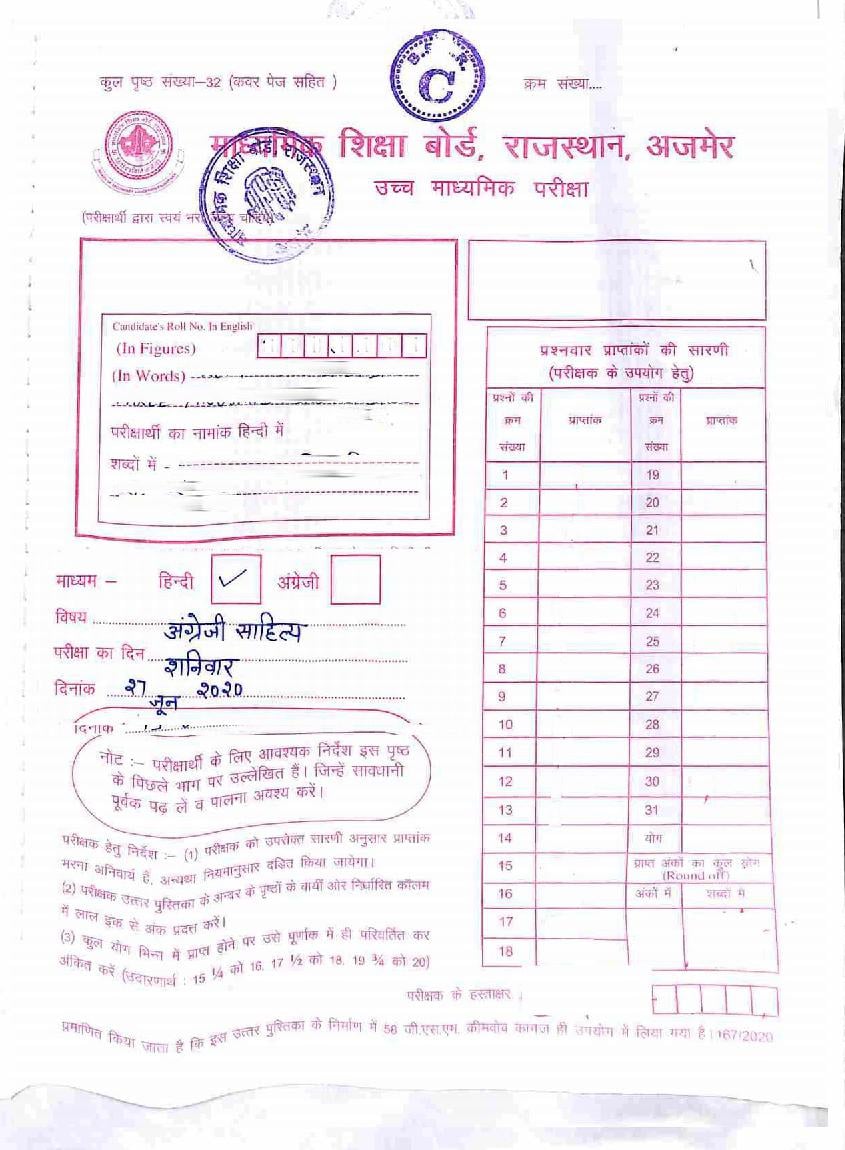 कुल पृष्ठ संख्या–32 (कवर पेज सहित )
B.F. R.
C
क्रम संख्या....
माध्यमिक शिक्षा बोर्ड, राजस्थान, अजमेर
उच्च माध्यमिक परीक्षा
माध्यमिक शिक्षा बोर्ड राजस्थान
(परीक्षार्थी द्वारा स्वयं भरा
Candidate's Roll No. In English
(In Figures)
(In Words)
परीक्षार्थी का नामांक हिन्दी में
शब्दों में -
प्रश्नवार प्राप्तांकों की सारणी
(परीक्षक के उपयोग हेतु)
प्रश्नों की क्रम संख्या प्राप्तांक प्रश्नों की क्रम संख्या प्राप्तांक
1 19
2 20
3 21
4 22
5 23
6 24
7 25
8 26
9 27
10 28
11 29
12 30
13 31
14 योग
15 प्राप्त अंकों का कुल योग (Round off)
16 अंकों में शब्दों में
17
18
माध्यम – हिन्दी ✓ अंग्रेजी
विषय अंग्रेजी साहित्य
परीक्षा का दिन शनिवार
दिनांक 27 जून 2020
दिनांक
नोट :– परीक्षार्थी के लिए आवश्यक निर्देश इस पृष्ठ
के पिछले भाग पर उल्लेखित हैं। जिन्हें सावधानी
पूर्वक पढ़ लें व पालना अवश्य करें।
परीक्षक हेतु निर्देश :– (1) परीक्षक को उपरोक्त सारणी अनुसार प्राप्तांक
भरना अनिवार्य है, अन्यथा नियमानुसार दंड़ित किया जायेगा।
(2) परीक्षक उत्तर पुस्तिका के अन्दर के पृष्ठों के बायीं ओर निर्धारित कॉलम
में लाल इंक से अंक प्रदत्त करें।
(3) कुल योग भिन्न में प्राप्त होने पर उसे पूर्णांक में ही परिवर्तित कर
अंकित करें (उदाहरणार्थ : 15 ¼ को 16, 17 ½ को 18, 19 ¾ को 20)
परीक्षक के हस्ताक्षर
प्रमाणित किया जाता है कि इस उत्तर पुस्तिका के निर्माण में 58 जी.एस.एम. क्रीमवोव कागज ही उपयोग में लिया गया है। 167/2020